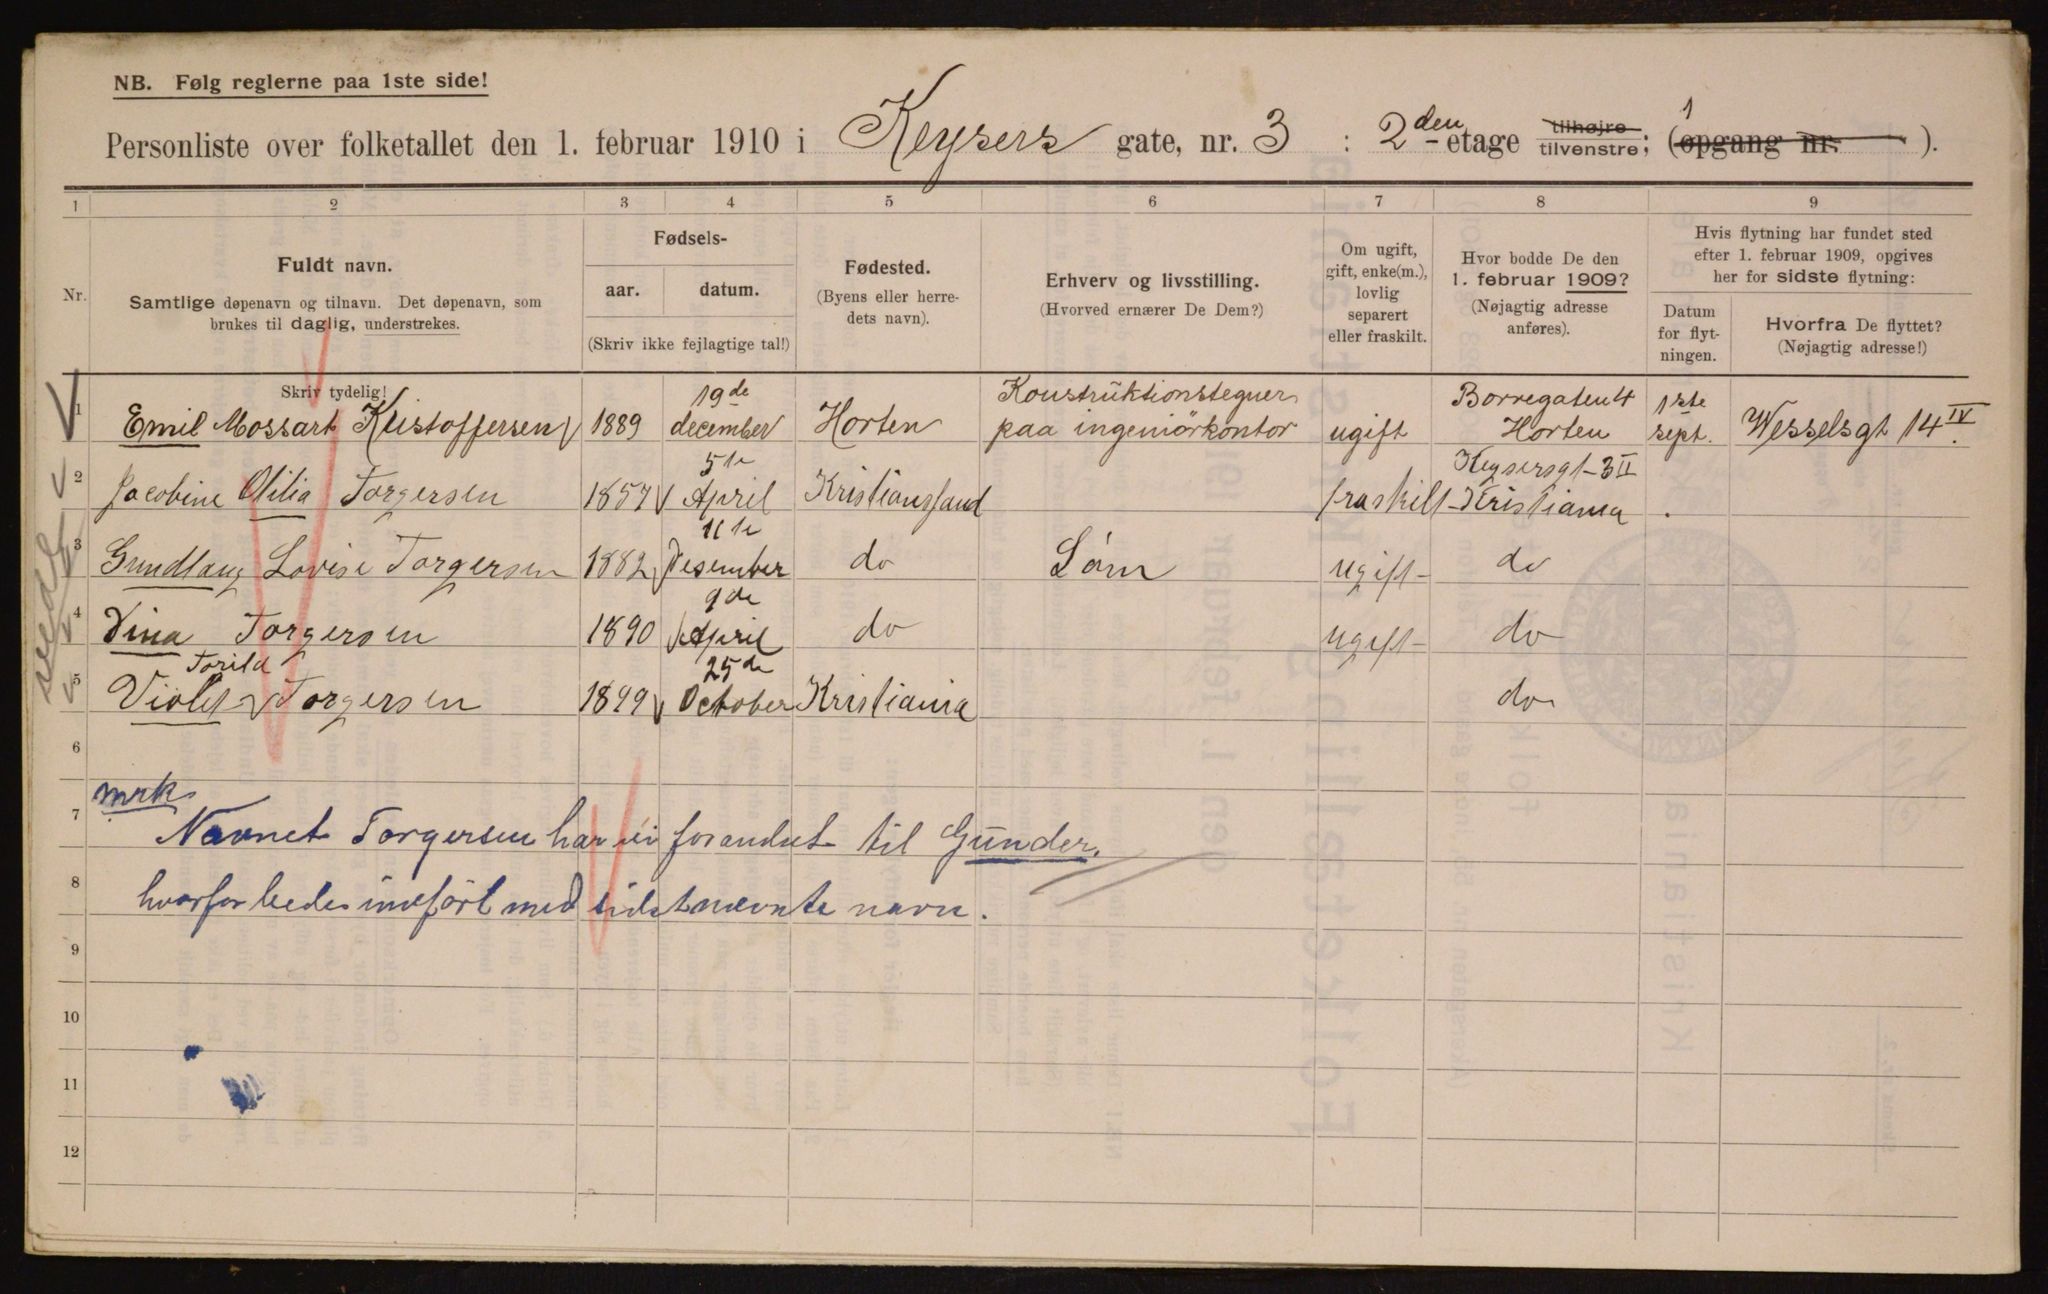 NB. Følg reglerne paa 1ste side!
Personliste over folketallet den 1. februar 1910 i Keysers gate, nr. 3 : 2den etage tilhøjre tilvenstre; (opgang nr. 1 ).
1 2 3 4 5 6 7 8 9
Nr.
Fuldt navn.
Samtlige døpenavn og tilnavn. Det døpenavn, som
brukes til daglig, understrekes.
Skriv tydelig!
Fødsels-
aar. datum.
(Skriv ikke fejlagtige tal!)
Fødested.
(Byens eller herre-
dets navn).
Erhverv og livsstilling.
(Hvorved ernærer De Dem?)
Om ugift,
gift, enke(m.),
lovlig
separert
eller fraskilt.
Hvor bodde De den
1. februar 1909?
(Nøjagtig adresse
anføres).
Hvis flytning har fundet sted
efter 1. februar 1909, opgives
her for sidste flytning:
Datum
for flyt-
ningen.
Hvorfra De flyttet?
(Nøjagtig adresse!)
1 Emil Mossart Kristoffersen 1889 19de december Horten Konstruktionstegner paa ingeniörkontor ugift Borregaten 4 Horten 1ste sept. Wesselsgt 14 IV.
2 Jacobine Otilia Torgersen 1857 5te April Kristianssand fraskilt Keysersgt-3 II Kristiania
3 Gundlaug Lovise Torgersen 1882 11te Desember do Söm ugift do
4 Dina Torgersen 1890 9de April do ugift do
5 Violet Torild Torgersen 1899 25de October Kristiania do
6
mrk
7 Navnet Torgersen har vi forandret til Gunder.
8 hvorfor bedes indfört med sidstnævnte navn.
9
10
11
12